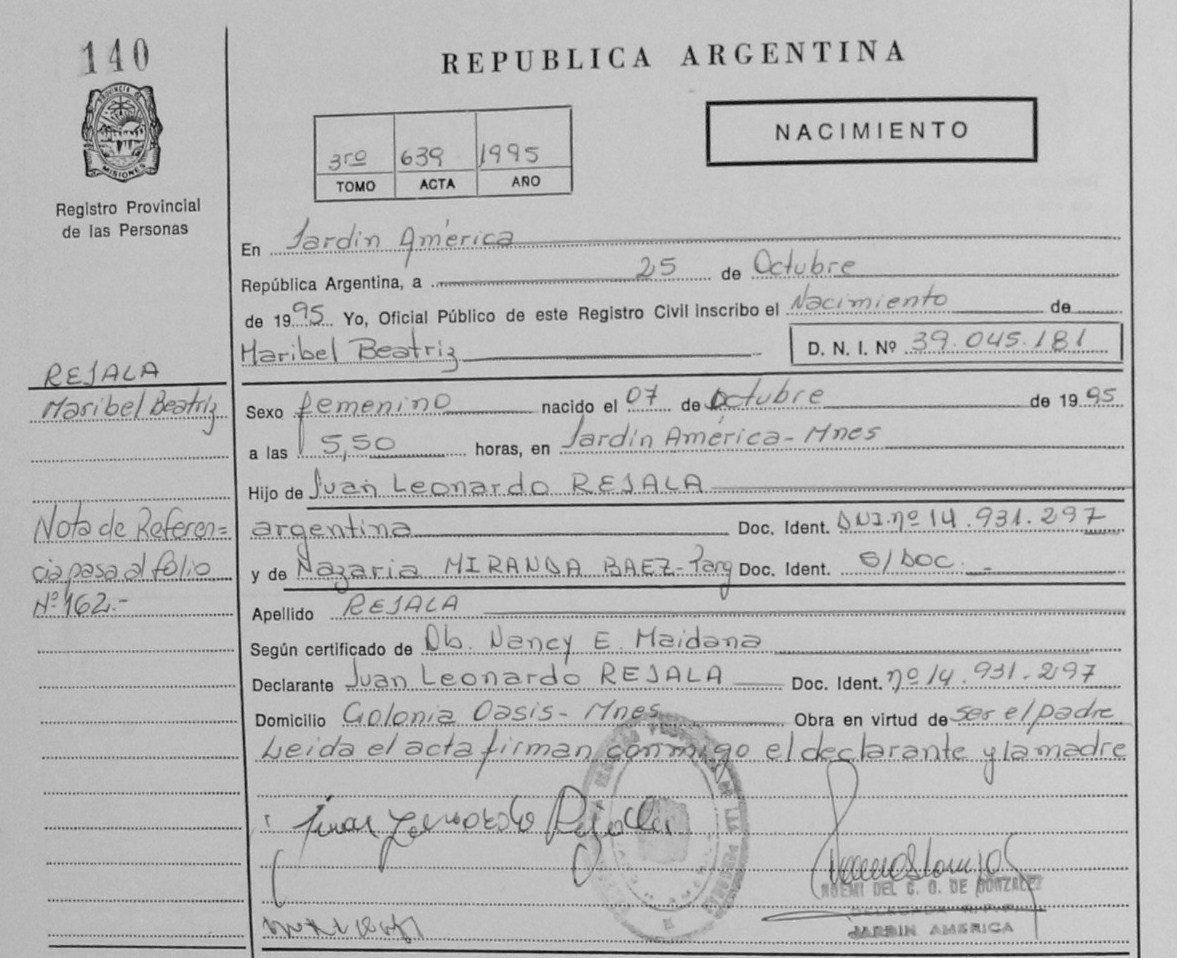 140
REPUBLICA ARGENTINA
PROVINCIA DE MISIONES
Registro Provincial
de las Personas
3ro 639 1995
TOMO ACTA AÑO
NACIMIENTO
En Jardin América
República Argentina, a 25 de Octubre
de 1995 Yo, Oficial Público de este Registro Civil inscribo el Nacimiento de
Maribel Beatriz D. N. I. Nº 39.045.181
REJALA
Maribel Beatriz
Nota de Referen=
cia pasa al folio
Nº 162.-
Sexo femenino nacido el 07 de Octubre de 1995
a las 5,50 horas, en Jardín América - Mnes
Hijo de Juan Leonardo REJALA
argentina Doc. Ident. DNI. nº 14.931.297
y de Nazaria MIRANDA BAEZ - Parg Doc. Ident. S/DOC.
Apellido REJALA
Según certificado de Ob. Nancy E. Maidana
Declarante Juan Leonardo REJALA Doc. Ident. nº 14.931.297
Domicilio Colonia Oasis - Mnes Obra en virtud de ser el padre
Leida el acta firman conmigo el declarante y la madre
NOEMI DEL C. O. DE GONZALEZ
JARDIN AMERICA